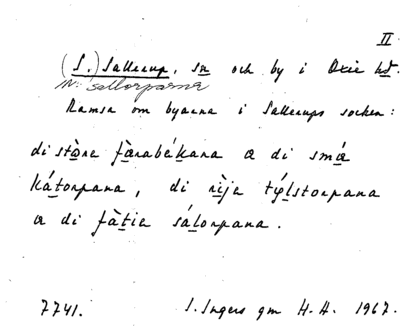 II
(S.) Sallerup, sn och by i Oxie hd.
N: sallorparna
Ramsa om byarna i Sallerups socken:
di stòne fàrabékana a di smá
kátorpana, di rìje týlstorpana
a di fàtie sálorpana.
7741. I. Ingers gm H. H. 1967.